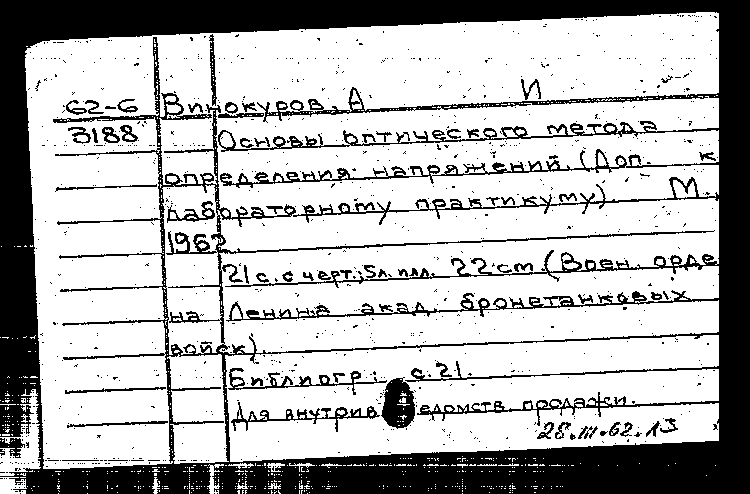 62-6 Винокуров, А И
3188 Основы оптического метода
определения напряжений. (Доп. к
лабораторному практикуму). М.,
1962.
21 с. с черт.; 5 л. илл. 22 cm. (Воен. орде
на Ленина акад. бронетанковых
войск).
Библиогр: с. 21.
Для внутриведомств. продажи.
28.III.62.